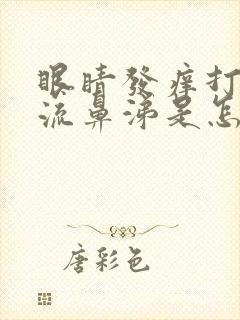 眼睛發癢打
流鼻涕是怎
唐彩色